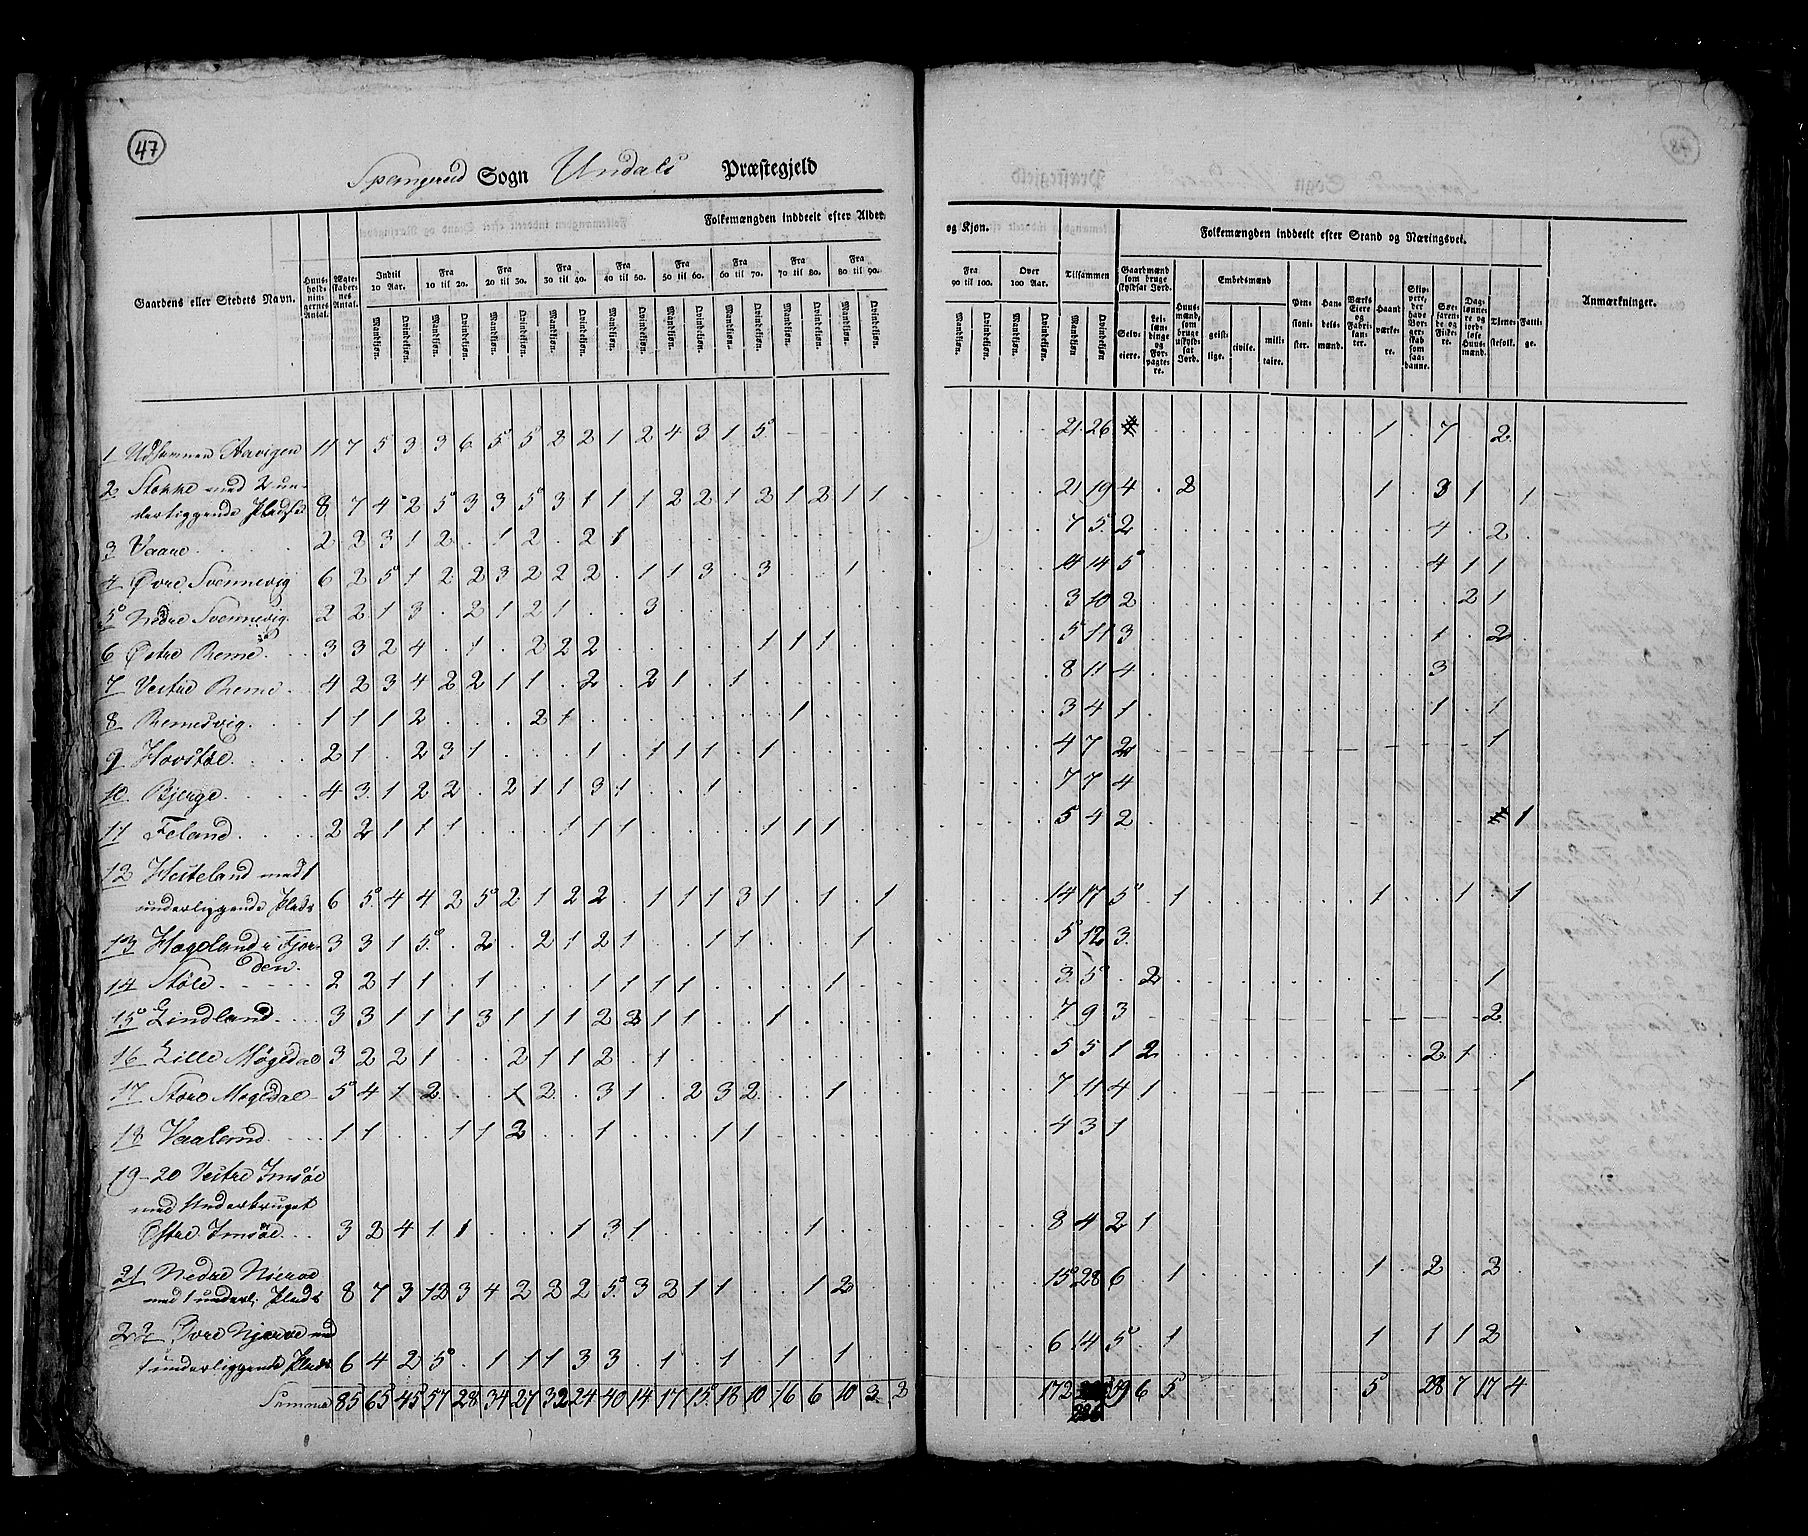 47
Spangereid Sogn Undals Præstegjeld
Folkemængden inddeelt efter Alder
og Kjøn.
Folkemængden inddeelt efter Stand og Næringsvei.
Gaardens eller Stedets Navn.
Huus-holdnin-gernes Antal.
Ægte-skaber-nes Antal.
Indtil 10 Aar.
Fra 10 til 20.
Fra 20 til 30.
Fra 30 til 40.
Fra 40 til 50.
Fra 50 til 60.
Fra 60 til 70.
Fra 70 til 80.
Fra 80 til 90.
Fra 90 til 100.
Over 100 Aar.
Tilsammen
Mandkjøn. Qvindekjøn.
Gaardmænd som bruge skyldsat Jord.
Selv-eiere.
Lei-lændinge og For-pagtere.
Huus-mænd, som bruge uskyld-sat Jord.
Embedsmænd
geist-lige.
civile.
mili-taire.
Pen-sioni-ster.
Han-dels-mænd.
Værks Eiere og Fabri-kan-ter.
Haand værke-re.
Skip-pere, der have Bor-ger-skab som saa-danne.
Søe-farende og Fiske-re.
Dag-lønne-re og jord-løse Huus-mænd.
Tjene-stefolk.
Fatti-ge.
Anmærkninger.
1 Udhavnen Aavigen 11 7 5 3 3 6 5 5 2 2 1 2 4 3 1 5 21 26 1 7 2
2 Stokke med 2 un-
derliggende Pladse 8 7 4 2 5 3 3 5 3 1 1 1 2 2 1 2 1 2 1 1 21 19 4 2 1 3 1 1
3 Vaare 2 2 3 1 2 1 2 2 1 7 5 2 4 2
4 Øvre Svennevig 6 2 5 1 2 2 3 2 2 2 1 1 3 3 1 14 14 5 4 1 1
5 Nedre Svennevig 2 2 1 3 2 1 2 1 3 3 10 2 2 1
6 Østre Reme 3 3 2 4 1 2 2 2 1 1 1 5 11 3 1 2
7 Vestre Reme 4 2 3 4 2 2 1 1 2 2 1 1 8 11 4 3
8 Remesvig 1 1 1 2 2 1 1 3 4 1 1 1
9 Hovstøl 2 1 2 3 1 1 1 1 1 1 4 7 2 1
10 Bjerge 4 3 1 2 2 2 1 1 3 1 1 7 7 4
11 Feland 2 2 1 1 1 1 1 1 1 1 1 5 4 2 1
12 Hesteland med 1
underliggende Plads 6 5 4 4 2 5 2 1 2 2 1 1 1 3 1 1 1 14 17 5 1 1 1 1
13 Hageland i Fjor-
den. 3 3 1 5 2 2 1 2 1 1 1 1 5 12 3
14 Støle 2 2 1 1 1 1 1 1 1 1 3 5 2 1
15 Lindland 3 3 1 1 1 3 1 1 1 2 2 1 1 1 7 9 3 2
16 Lille Møgedal 3 2 2 1 2 1 1 2 1 5 5 1 2 2 1
17 Store Møgedal 5 4 1 2 1 2 3 1 2 3 2 1 7 11 4 1 1
18 Vaaland 1 1 1 1 2 1 1 1 4 3 1
19-20 Vestre Imsøe
med Underbruget
Østre Imsøe 3 2 4 1 1 1 3 1 1 8 4 2 1
21 Nedre Njerve
med 1 underl. Plads 8 7 3 12 3 4 2 2 2 5 3 2 1 1 1 2 15 28 6 1 1 2 2
22 Øvre Njerve med
1 underliggende Plads 6 4 2 5 1 1 1 3 3 1 1 1 1 6 14 5 1 1 1 1 2
Summa 85 65 45 57 28 34 27 32 24 40 14 17 15 18 10 16 6 10 3 2 172 59 6 5 5 28 7 17 4
226